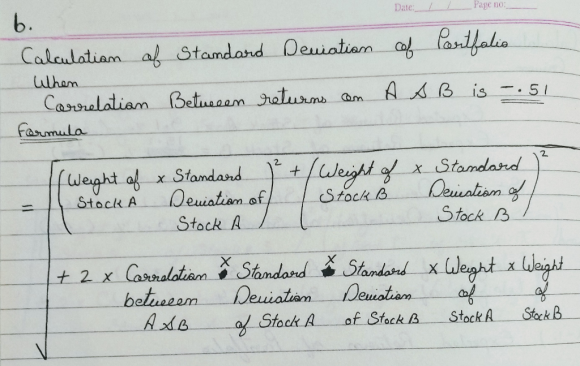 Date: / / Page no:
b.
Calculation of Standard Deviation of Portfolio
When
Correlation Between returns on A & B is -.51
Formula
= √ (Weight of Stock A x Standard Deviation of Stock A)² + (Weight of Stock B x Standard Deviation of Stock B)²
+ 2 x Correlation between A & B x Standard Deviation of Stock A x Standard Deviation of Stock B x Weight of Stock A x Weight of Stock B